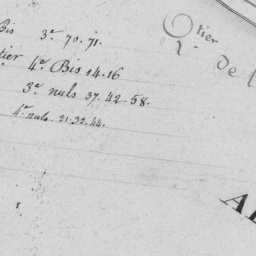 Bis 3e 70.71.
tier 4e Bis 14.16
3e nuls 37.42.58.
4e nuls 21.32.44.
Qtier
De l
A